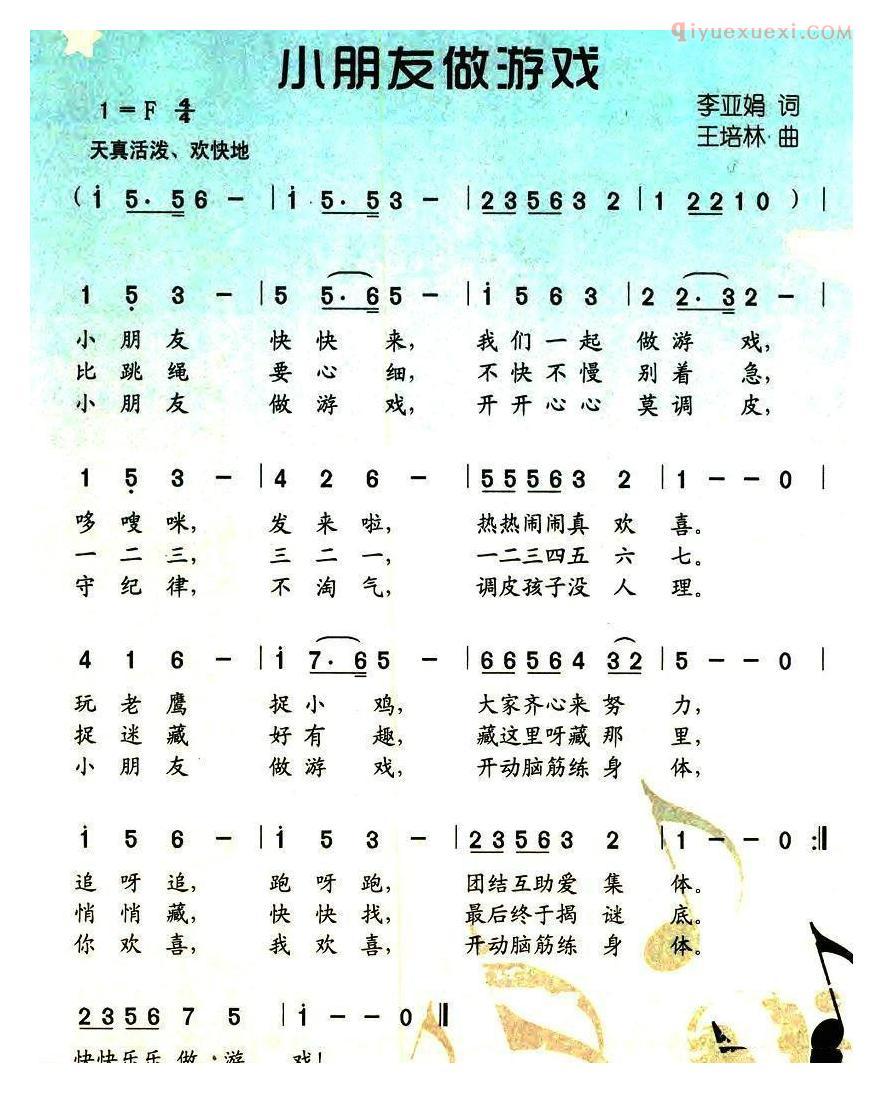 qiyuexuexi.COM
小朋友做游戏
1=F 4/4
李亚娟 词
王培林 曲
天真活泼、欢快地
(i 5· 5 6 - | i 5· 5 3 - | 2 3 5 6 3 2 | 1 2 2 1 0 ) |
1 5̣ 3 - | 5 5· 6 5 - | i 5 6 3 | 2 2· 3 2 - |
小 朋 友 快 快 来, 我 们 一 起 做 游 戏,
比 跳 绳 要 心 细, 不 快 不 慢 别 着 急,
小 朋 友 做 游 戏, 开 开 心 心 莫 调 皮,
1 5̣ 3 - | 4 2 6 - | 5 5 5 6 3 2 | 1 - - 0 |
哆 嗖 咪, 发 来 啦, 热热闹闹真 欢 喜。
一 二 三, 三 二 一, 一二三四五 六 七。
守 纪 律, 不 淘 气, 调皮孩子没 人 理。
4 1 6 - | i 7· 6 5 - | 6 6 5 6 4 3 2 | 5 - - 0 |
玩 老 鹰 捉 小 鸡, 大家齐心来 努 力,
捉 迷 藏 好 有 趣, 藏这里呀藏 那 里,
小 朋 友 做 游 戏, 开动脑筋练 身 体,
i 5 6 - | i 5 3 - | 2 3 5 6 3 2 | 1 - - 0 :‖
追 呀 追, 跑 呀 跑, 团结互助爱 集 体。
悄 悄 藏, 快 快 找, 最后终于揭 谜 底。
你 欢 喜, 我 欢 喜, 开动脑筋练 身 体。
2 3 5 6 7 5 | i - - 0 ‖
快快乐乐 做 游 戏!